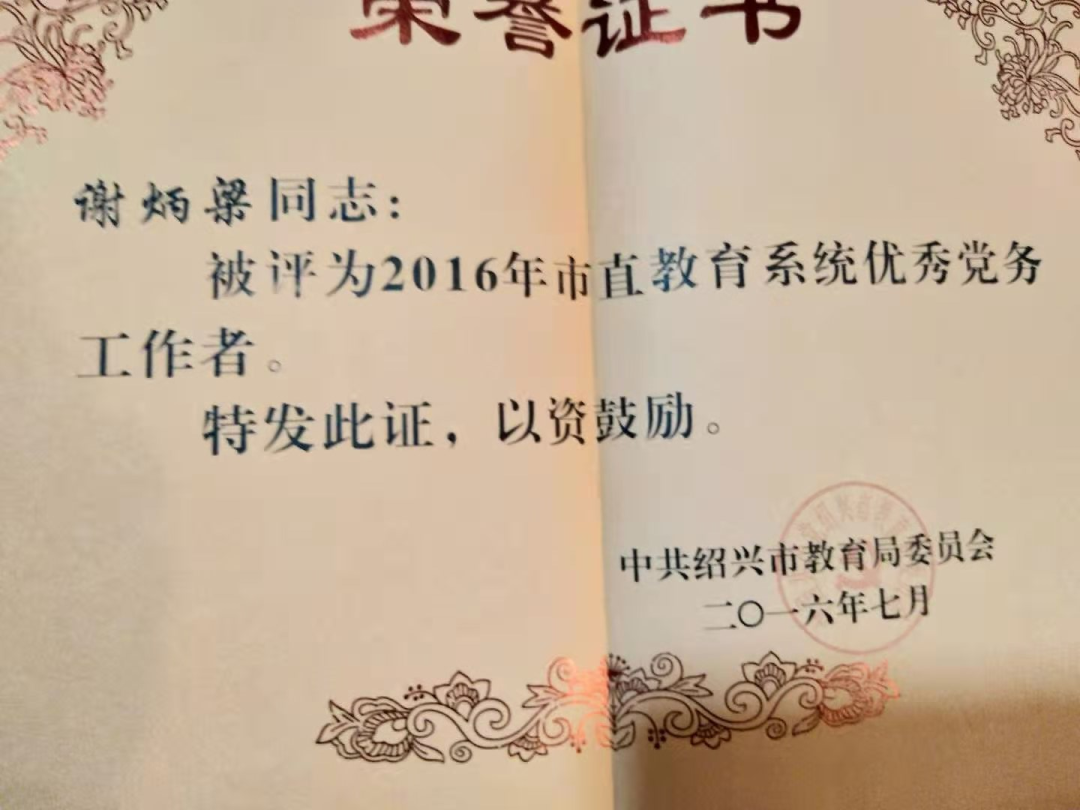 荣誉证书
谢炳梁同志：
被评为2016年市直教育系统优秀党务
工作者。
特发此证，以资鼓励。
中共绍兴市教育局委员会
二〇一六年七月